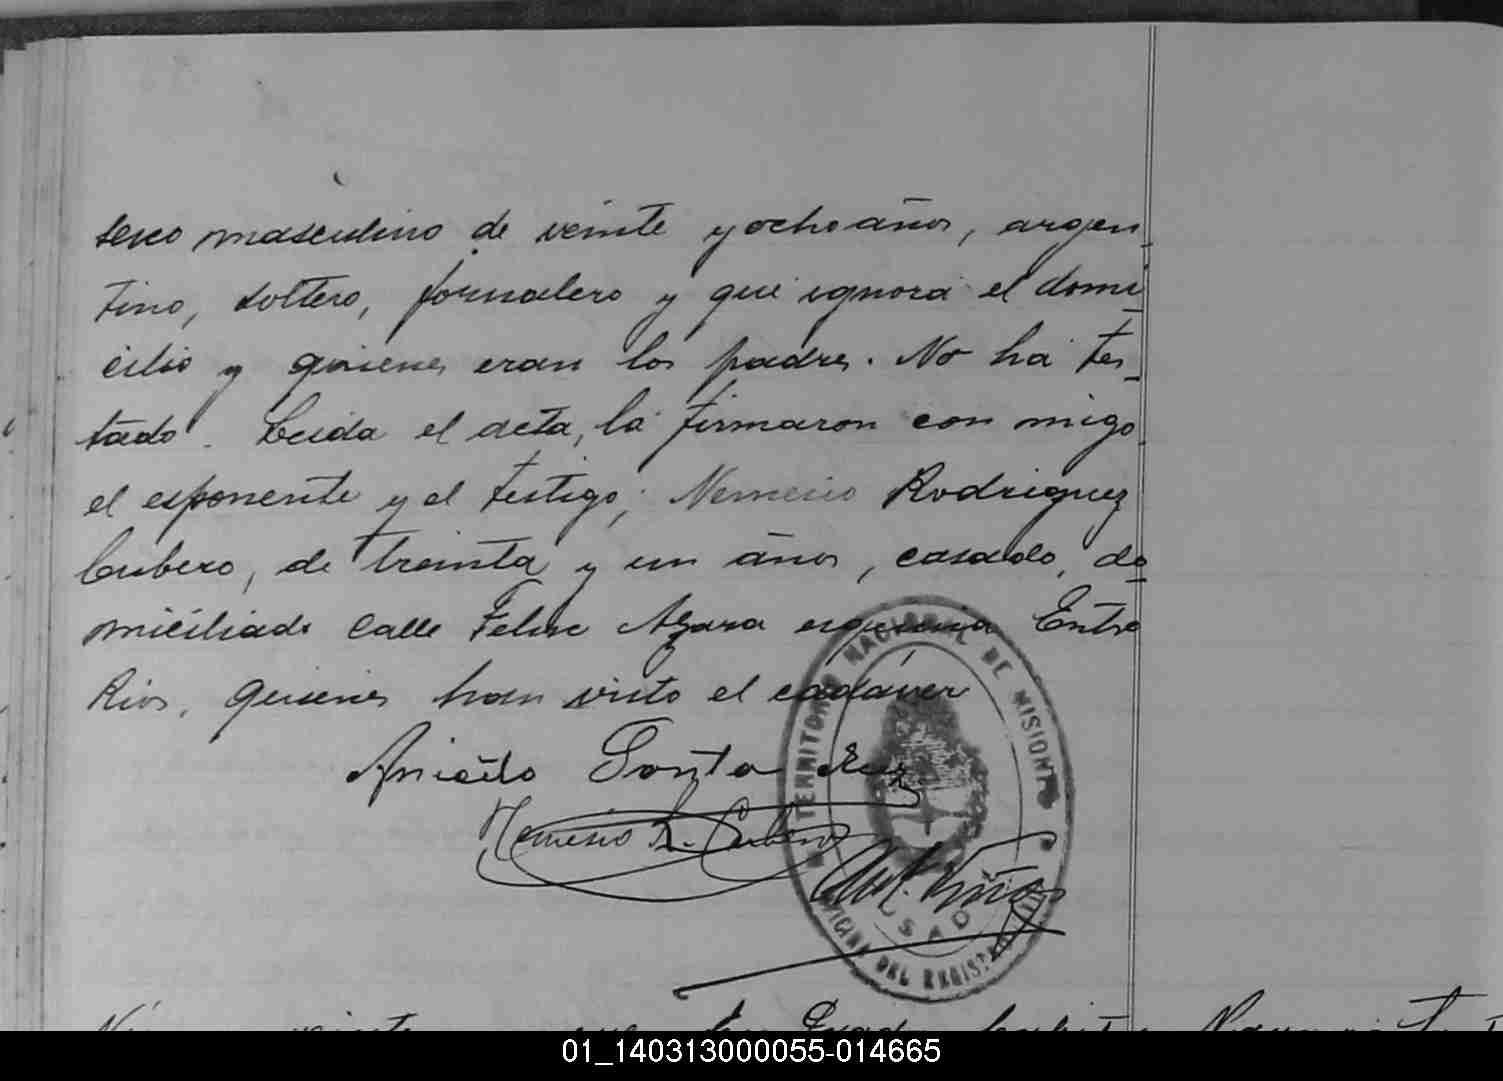 sexo masculino de veinte y ocho años, argen-
tino, soltero, jornalero y que ignora el domi-
cilio y quienes eran los padres. No ha tes-
tado. Leida el acta, la firmaron con migo
el esponente y el testigo; Nemesio Rodriguez
Cubero, de treinta y un años, casado, do-
miciliado calle Felix Azara esquina Entre
Rios, quienes han visto el cadáver
Aniceto Santa Cruz
Nemesio R. Cubero
TERRITORIO NACIONAL DE MISIONES
OFICINA DEL REGISTRO CIVIL
veinte
01_140313000055-014665